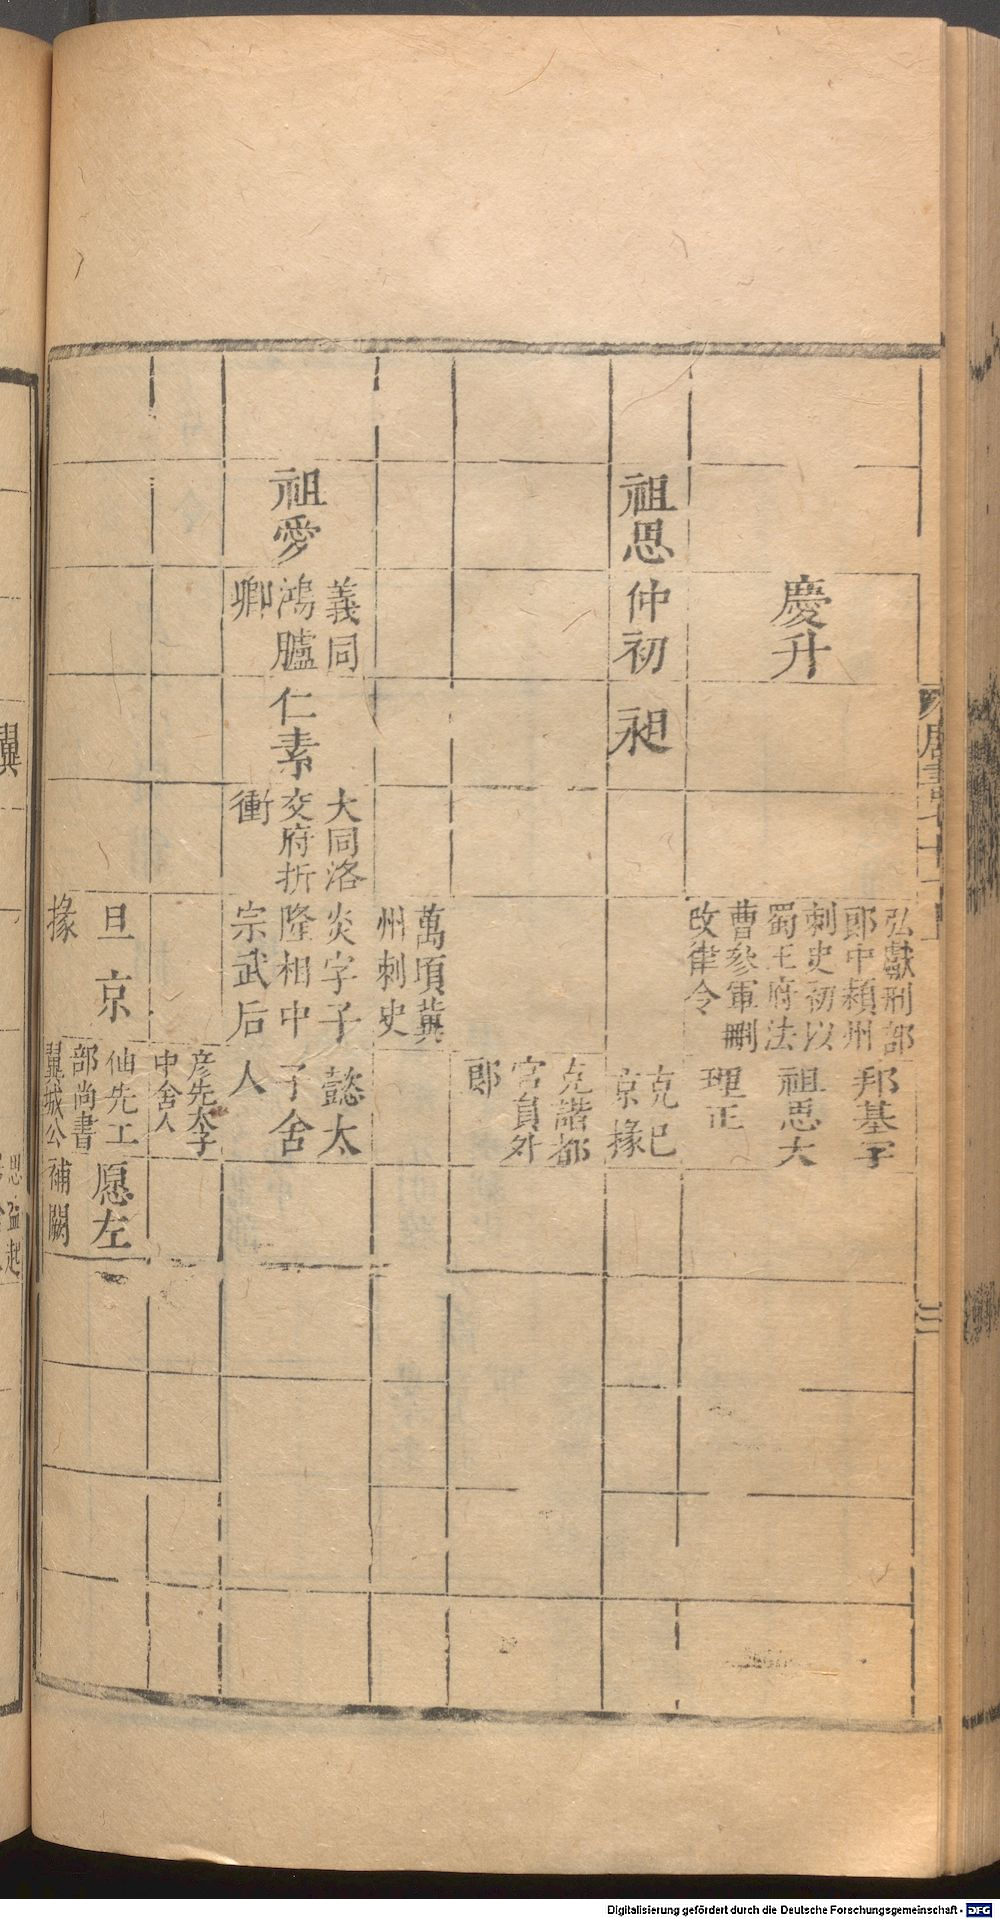 慶升
弘獻刑部
郎中潁州
刺史初以
蜀王府法
曹參軍刪
改律令
邦基字
祖悉大
理正
祖思
仲初
昶
克己
京掾
克諧都
官員外
郎
萬頃冀
州刺史
祖愛
義同
鴻臚
卿
仁素
大同洛
交府折
衝
炎字子
隆相中
宗武后
懿太
子舍
人
彥先太子
中舍人
旦京
掾
仙先工
部尚書
翼城公
愿左
補闕
唐書七十一上
三
翼
Digitalisierung gefördert durch die Deutsche Forschungsgemeinschaft - DFG